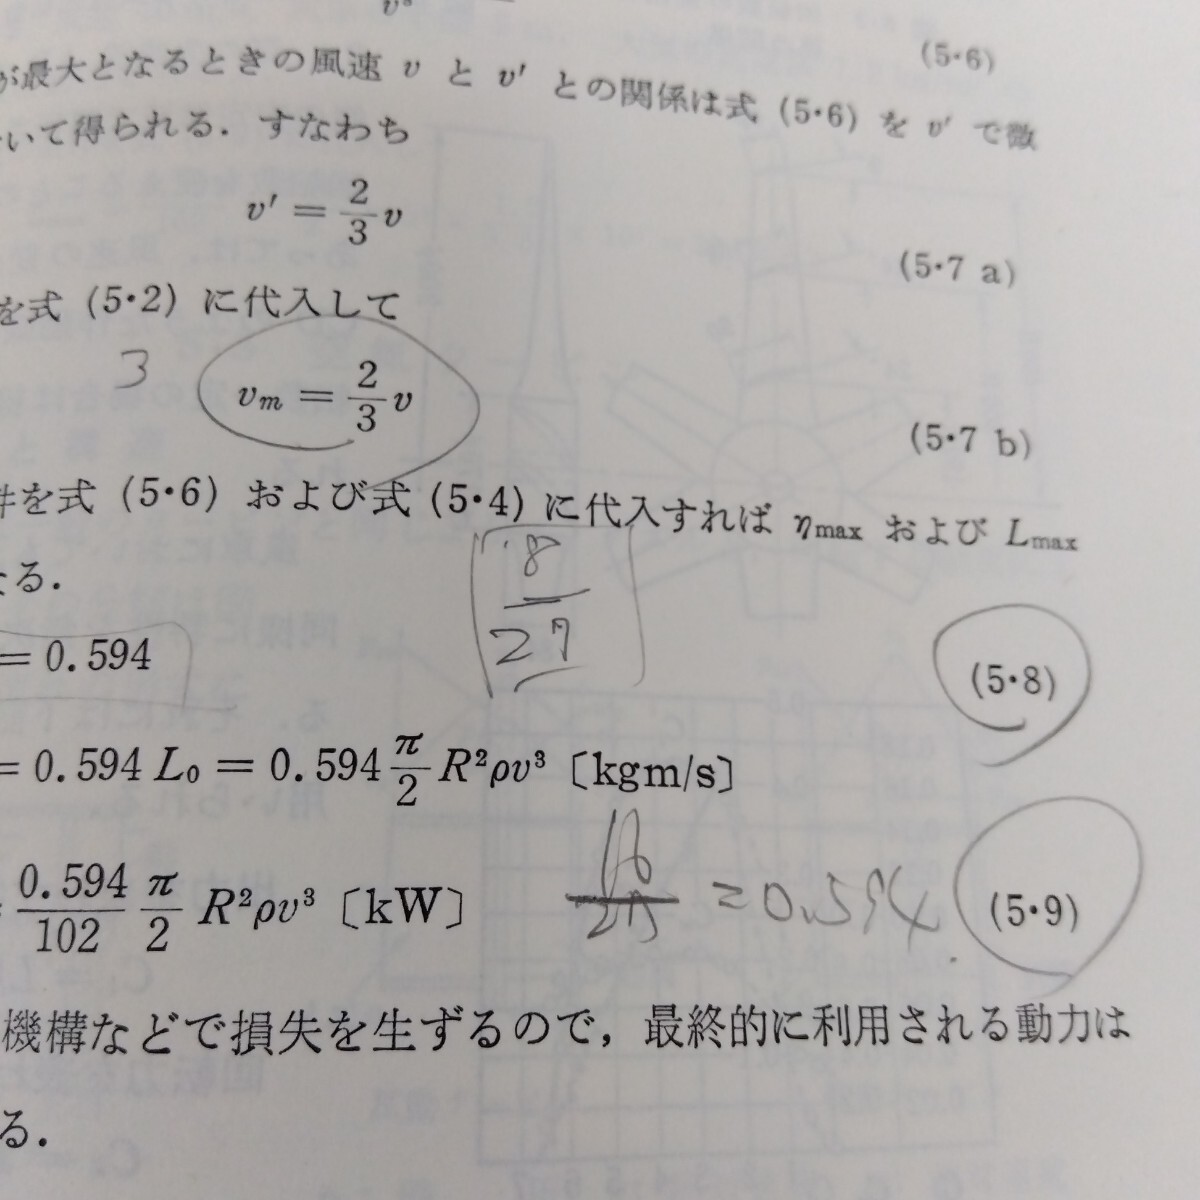 v³
(5·6)
が最大となるときの風速 v と v′ との関係は式 (5·6) を v′ で微
いて得られる．すなわち
v′ = 2/3 v
(5·7 a)
を式 (5·2) に代入して
3
v_m = 2/3 v
(5·7 b)
件を式 (5·6) および式 (5·4) に代入すれば η_max および L_max
なる．
8/27
= 0.594
(5·8)
= 0.594 L₀ = 0.594 π/2 R²ρv³〔kgm/s〕
0.594/102 π/2 R²ρv³〔kW〕
= 0.594
(5·9)
機構などで損失を生ずるので，最終的に利用される動力は
る．